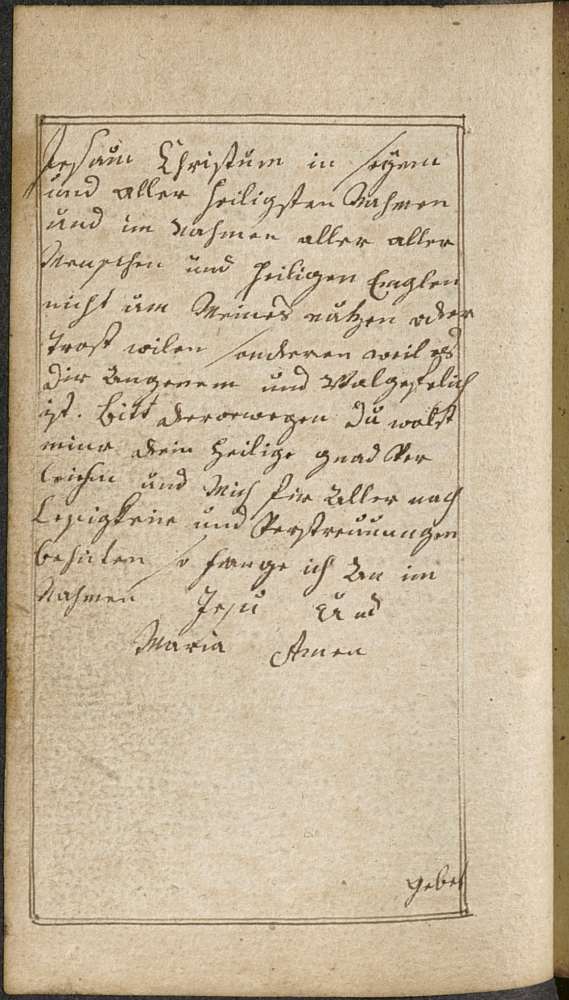 Jesum Christum in seinen
und aller heiligsten Nahmen
und im Nahmen aller aller
Menschen und heiligen Englen
nicht um Meines nutzen oder
trost wilen sonderen weil es
dir Angenem und Wolgefelich
ist. bitt derowegen du wolst
mir dein heilige gnad Ver
leichen und Mich fir Aller nach
und Verstreuungen
behieten so fange ich An im
Nahmen Jesu Und
Maria Amen
gebet